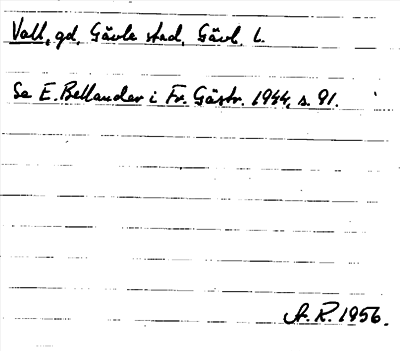 Vall, gd, Gävle stad, Gävl. L.
Se E. Bellander i Fr. Gästr. 1944, s. 91.
A. R. 1956.